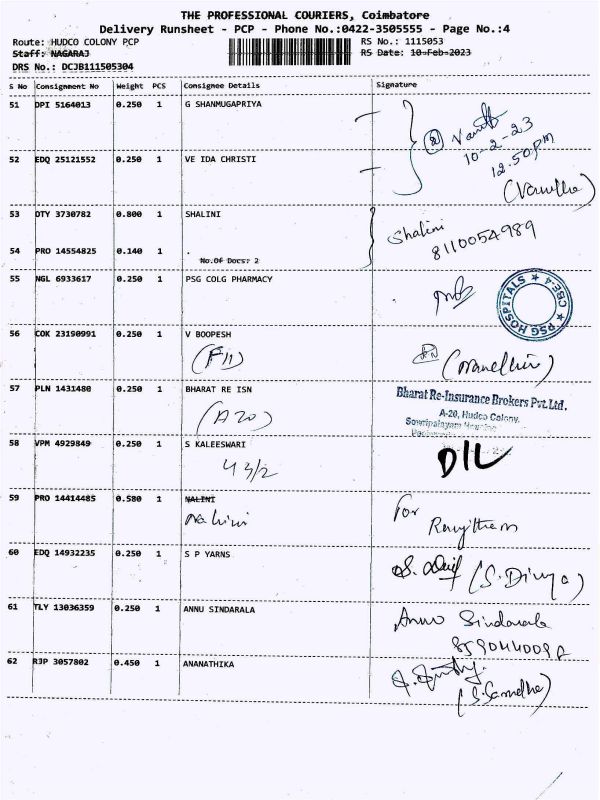 THE PROFESSIONAL COURIERS, Coimbatore
Delivery Runsheet - PCP - Phone No.:0422-3505555 - Page No.:4
Route: HUDCO COLONY PCP RS No.: 1115053
Staff: NAGARAJ RS Date: 10-Feb-2023
DRS No.: DCJB111505304
S No Consignment No Weight PCS Consignee Details Signature
51 DPI 5164013 0.250 1 G SHANMUGAPRIYA
10-2-23
12.50pm
52 EDQ 25121552 0.250 1 VE IDA CHRISTI
53 DTY 3730782 0.800 1 SHALINI Shalini
8110054989
54 PRO 14554825 0.140 1 .
No.Of Docs: 2
55 NGL 6933617 0.250 1 PSG COLG PHARMACY
PSG HOSPITALS CBE-4
56 COK 23190991 0.250 1 V BOOPESH
(F11)
57 PLN 1431480 0.250 1 BHARAT RE ISN
(A20)
Bharat Re-Insurance Brokers Pvt. Ltd.
A-20, Hudco Colony,
Sowripalayam
58 VPM 4929849 0.250 1 S KALEESWARI
43/2
D/L
59 PRO 14414485 0.580 1 NALINI
Nalini
For
60 EDQ 14932235 0.250 1 S P YARNS
(S. Divya)
61 TLY 13036359 0.250 1 ANNU SINDARALA
Annu Sindarala
62 RJP 3057802 0.450 1 ANANATHIKA